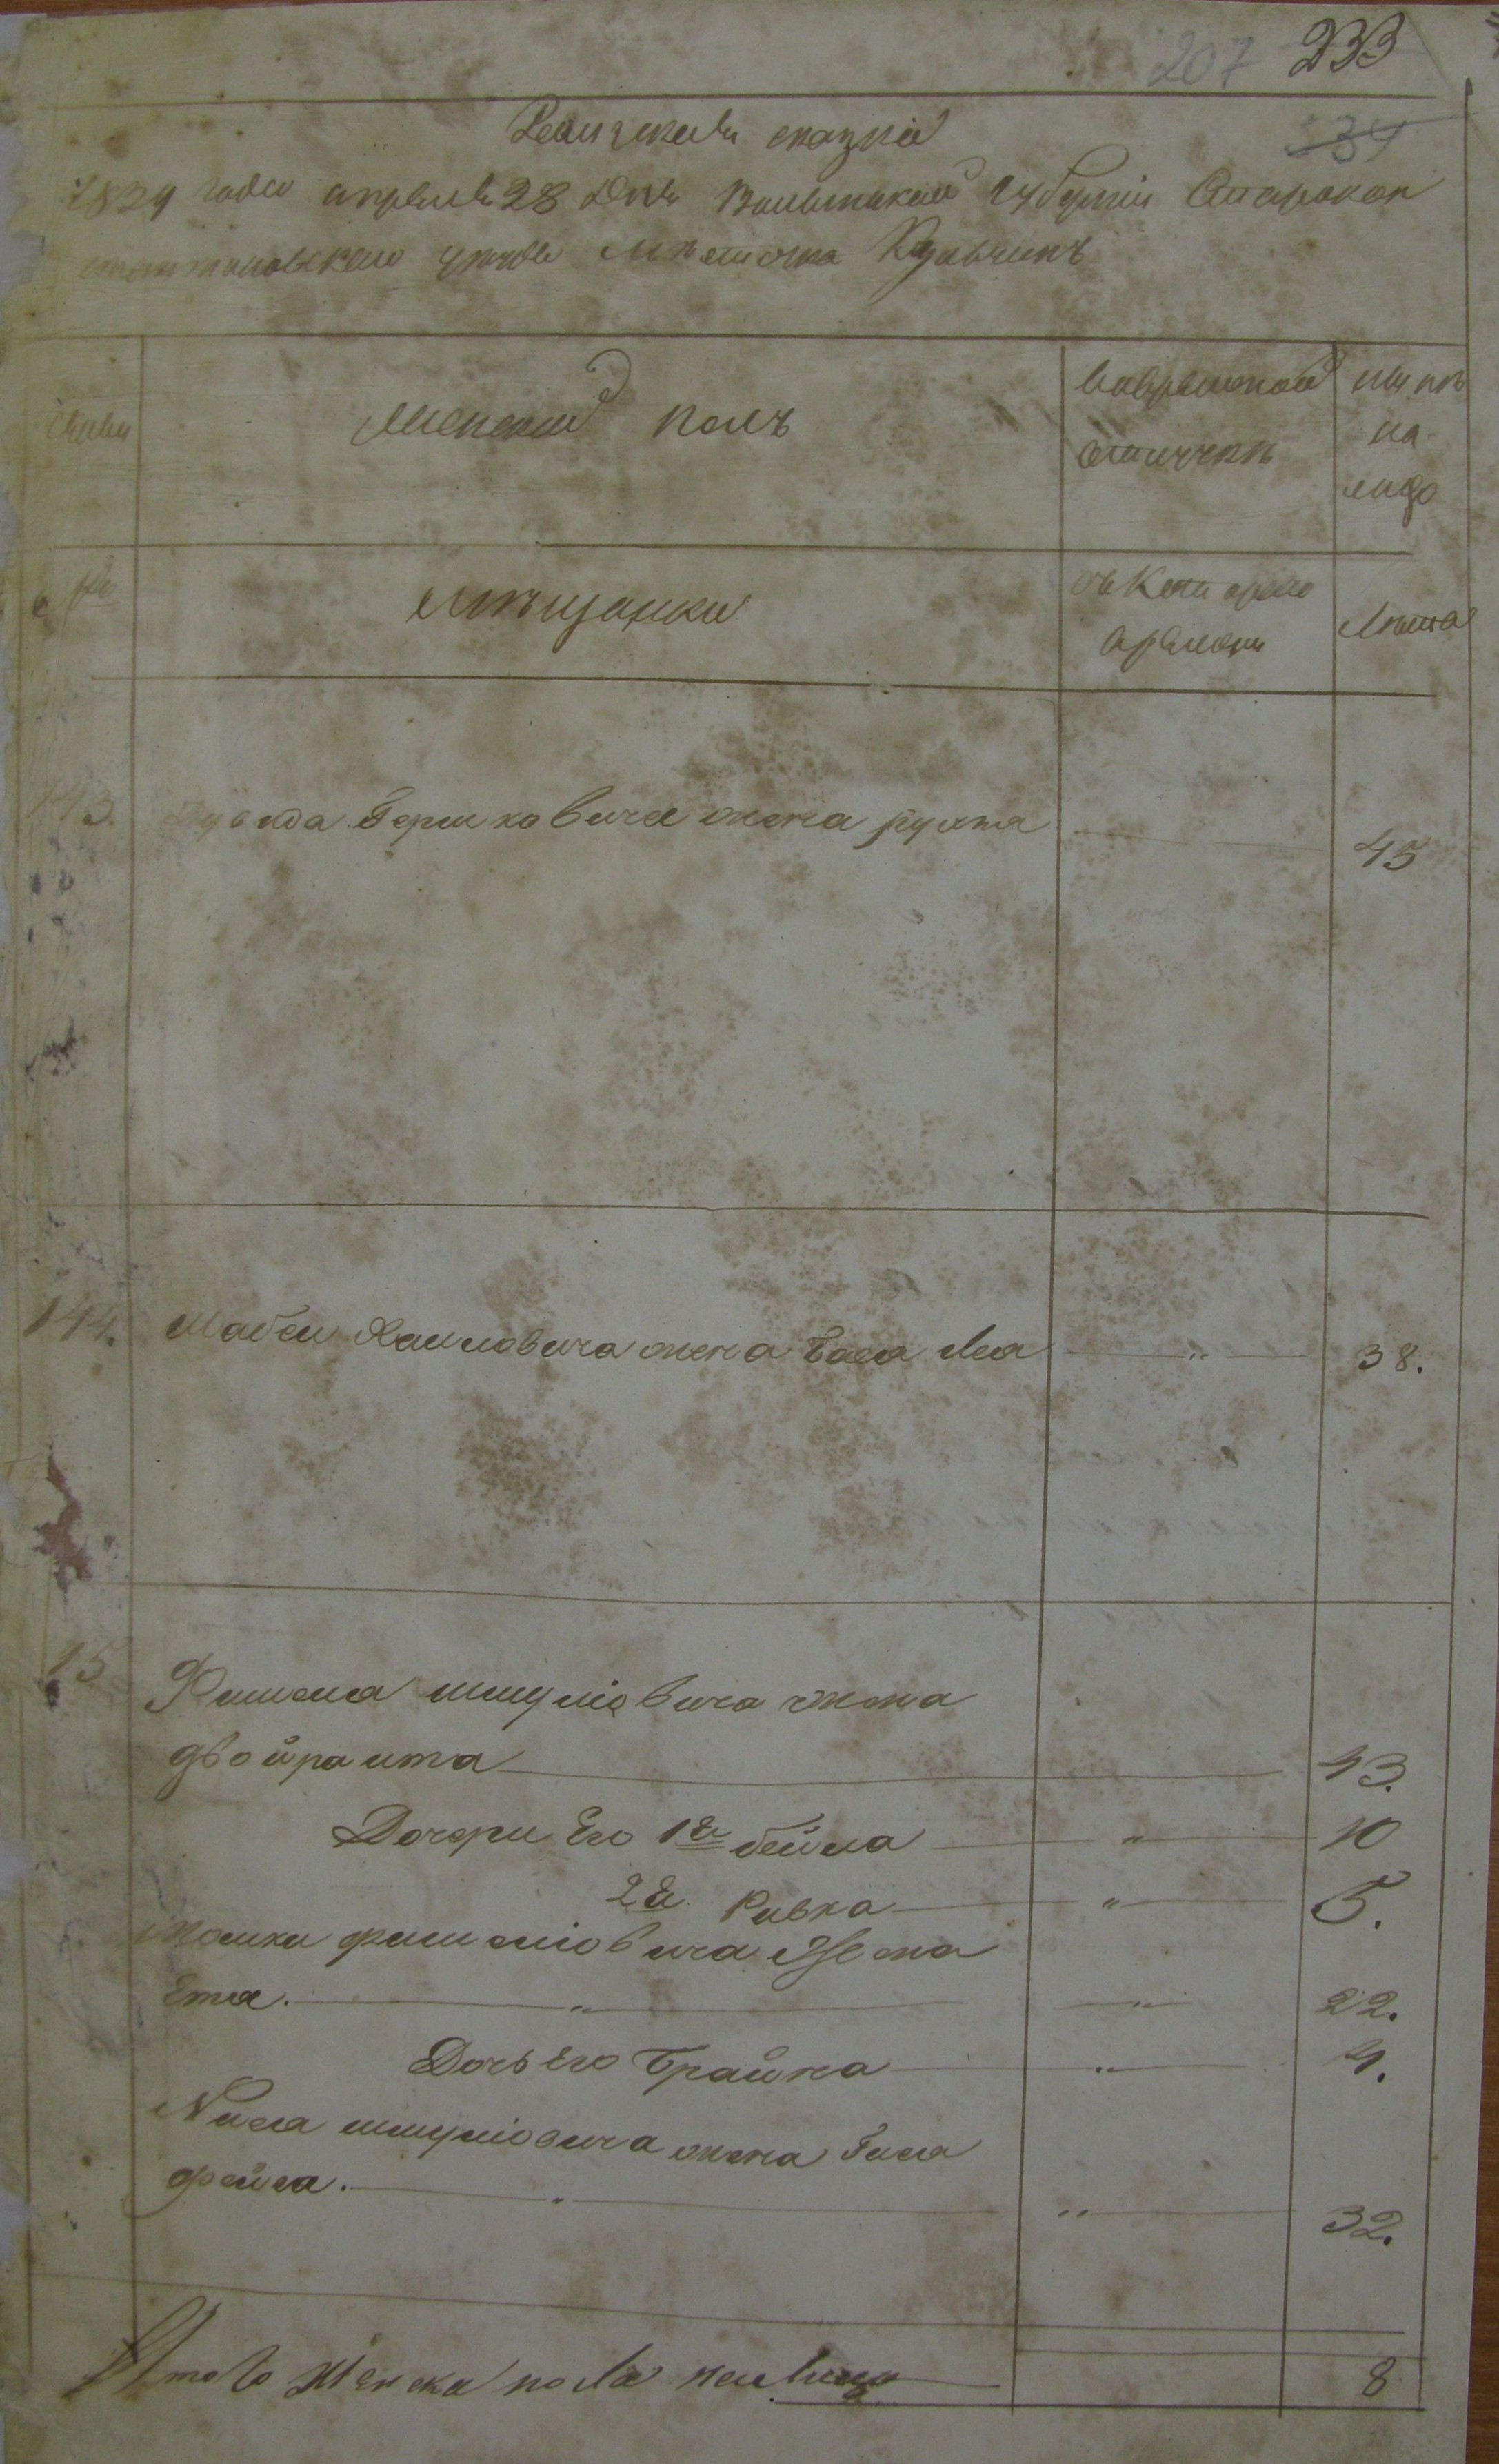 207 233
34
Ревижская сказка
1834 года апреля 28 дня Волынской губернии Старокон
стантиновского уезда местечка Кульчинъ
Женский полъ
Вовременной
отлучке
ныне
на
лицо
№
Мещанки
съ Котораго
времени
Лета
143. Гершковича жена рухля 45
144. Шабси Хаимовича жена Бася Лея " 38.
145 Фишеля шмулiовича жена
двойра ита 43.
Дочери Его 1я бейла " 10
2я Ривка " 5.
фишелiовича Жена
Етя. " " 22.
Дочь Его Брайна " 4.
шмулiовича жена Гися
фейга. " " 32.
Итого Женска пола налицо 8